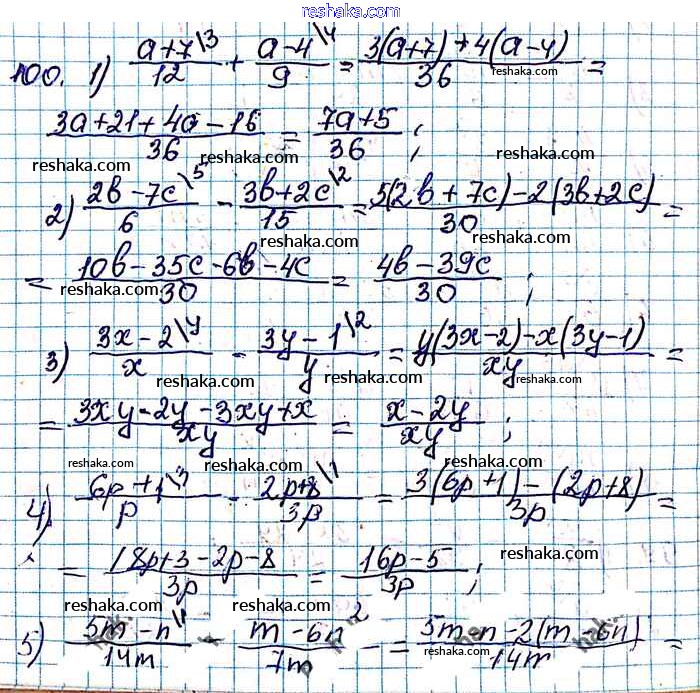 reshaka.com
100. 1) (a+7\3)/12 + (a-4\4)/9 = (3(a+7)+4(a-4))/36 =
(3a+21+4a-16)/36 = (7a+5)/36 ;
reshaka.com reshaka.com reshaka.com
2) (2b-7c\5)/6 - (3b+2c\2)/15 = (5(2b+7c)-2(3b+2c))/30 =
reshaka.com reshaka.com reshaka.com
= (10b-35c-6b-4c)/30 = (4b-39c)/30 ;
reshaka.com reshaka.com
3) (3x-2\y)/x - (3y-1\2)/y = (y(3x-2)-x(3y-1))/xy =
reshaka.com reshaka.com reshaka.com
= (3xy-2y-3xy+x)/xy = (x-2y)/xy ;
reshaka.com reshaka.com reshaka.com
4) (6p+1\3)/p - (2p+8\1)/3p = (3(6p+1)-(2p+8))/3p =
reshaka.com reshaka.com
= (18p+3-2p-8)/3p = (16p-5)/3p ;
reshaka.com reshaka.com reshaka.com
5) (5m-n\1)/14m - (m-6n\2)/7m = (5m-n-2(m-6n))/14m =
reshaka.com